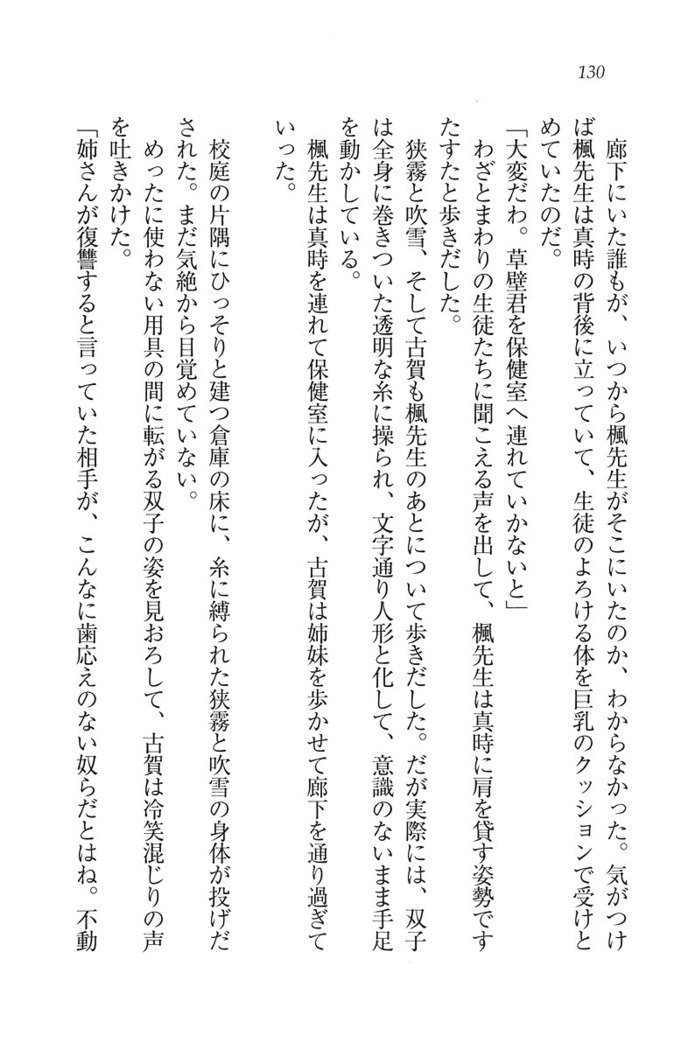 130
　廊下にいた誰もが、いつから楓先生がそこにいたのか、わからなかった。気がつけ
ば楓先生は真時の背後に立っていて、生徒のよろける体を巨乳のクッションで受けと
めていたのだ。
「大変だわ。草壁君を保健室へ連れていかないと」
　わざとまわりの生徒たちに聞こえる声を出して、楓先生は真時に肩を貸す姿勢です
たすたと歩きだした。
　狭霧と吹雪、そして古賀も楓先生のあとについて歩きだした。だが実際には、双子
は全身に巻きついた透明な糸に操られ、文字通り人形と化して、意識のないまま手足
を動かしている。
　楓先生は真時を連れて保健室に入ったが、古賀は姉妹を歩かせて廊下を通り過ぎて
いった。
　校庭の片隅にひっそりと建つ倉庫の床に、糸に縛られた狭霧と吹雪の身体が投げだ
された。まだ気絶から目覚めていない。
　めったに使わない用具の間に転がる双子の姿を見おろして、古賀は冷笑混じりの声
を吐きかけた。
「姉さんが復讐すると言っていた相手が、こんなに歯応えのない奴らだとはね。不動